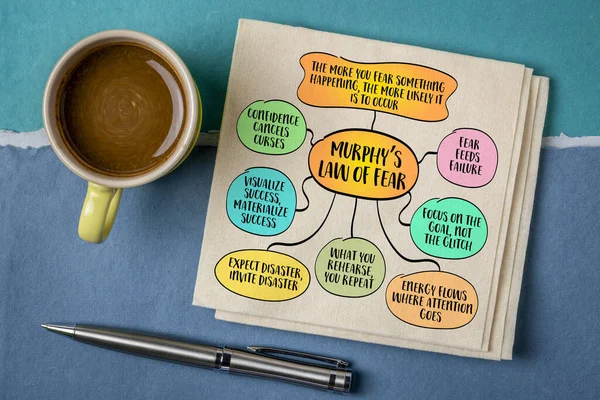 THE MORE YOU FEAR SOMETHING
HAPPENING, THE MORE LIKELY IT
IS TO OCCUR
CONFIDENCE
CANCELS
CURSES
MURPHY'S
LAW OF FEAR
FEAR
FEEDS
FAILURE
VISUALIZE
SUCCESS,
MATERIALIZE
SUCCESS
FOCUS ON THE
GOAL, NOT
THE GLITCH
EXPECT DISASTER,
INVITE DISASTER
WHAT YOU
REHEARSE,
YOU REPEAT
ENERGY FLOWS
WHERE ATTENTION
GOES